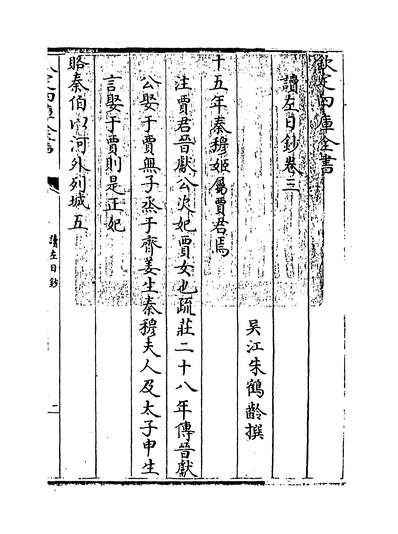 欽定四庫全書
讀左日鈔卷三
吳江朱鶴齡撰
十五年秦穆姬屬賈君焉
注賈君晉獻公次妃賈女也疏莊二十八年傳晉獻
公娶于賈無子烝于齊姜生秦穆夫人及太子申生
言娶于賈則是正妃
賂秦伯以河外列城五
讀左日鈔